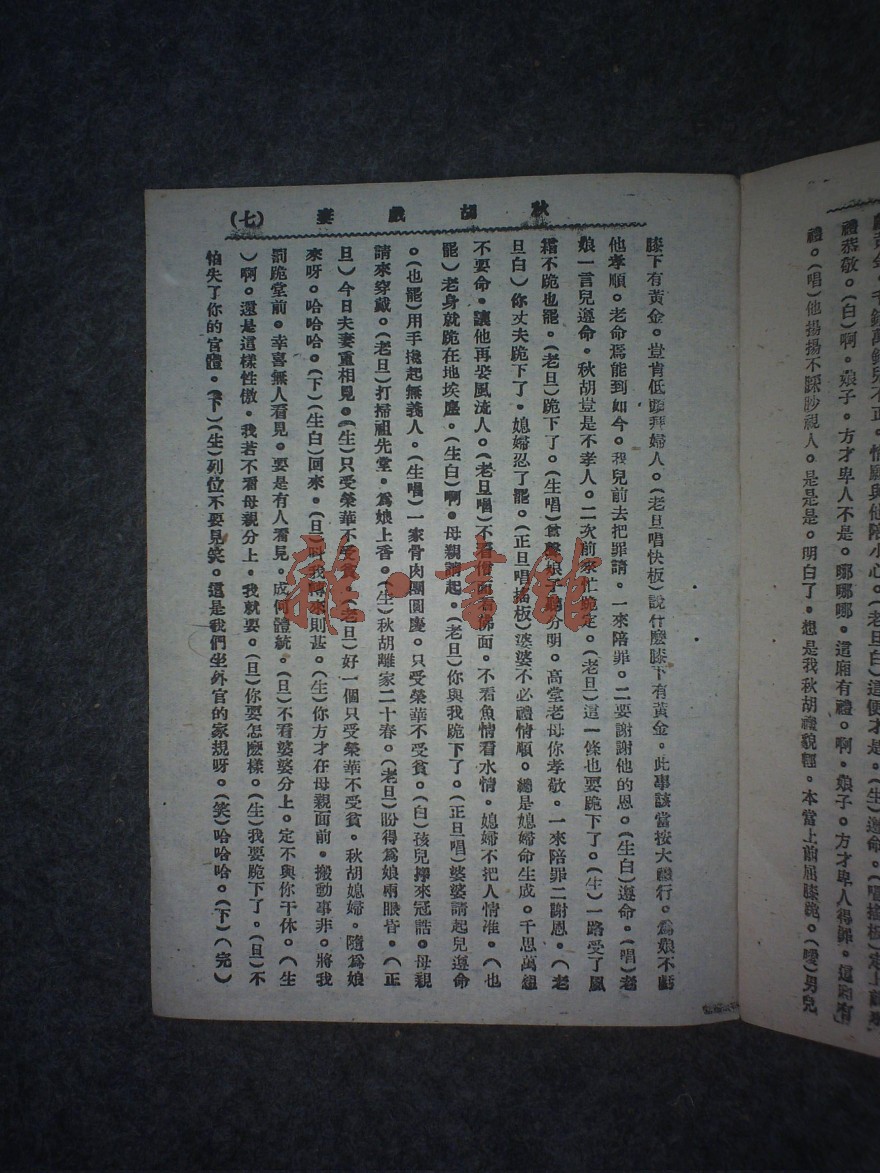 禮。(唱)他揚揚不踩眇視人。是是是。明白了。想是我秋胡禮貌輕。本當上前屈膝跪。(噯)男兒
秋胡戲妻 (七)
膝下有黃金。豈肯低頭拜婦人。(老旦唱快板)說什麼膝下有黃金。此事該當按大禮行。為娘不虧
他孝順。老命焉能到如今。我兒前去把罪請。一來陪罪。二要謝謝他的恩。(生白)遵命。(唱)老
娘一言兒遵命。秋胡豈是不孝人。二次前來忙跪定。(老旦)這一條也要跪下了。(生)一路受了風
霜不跪也罷。(老旦)跪下了。(生唱)娘子聽分明。高堂老母你孝敬。一來陪罪二謝恩。(老
旦白)你丈夫跪下了。媳婦忍了罷。(正旦唱搖板)婆婆不必禮情順。總是媳婦命生成。千思萬想
不要命。讓他再娶風流人。(老旦唱)不看僧面看佛面。不看魚情看水情。媳婦不把人情准。(也
罷)老身就跪在地埃塵。(生白)啊。母親請起。(老旦)你與我跪下了。(正旦唱)婆婆請起兒遵命
。(也罷)用手攙起無義人。(生唱)一家骨肉團圓慶。只受榮華不受貧。(白)孩兒捧來冠誥。母親
請來穿戴。(老旦)打掃祖先堂。為娘上香。(生)秋胡離家二十春。(老旦)盼得為娘兩眼昏。(正
旦)今日夫妻重相見。(生)只受榮華不受貧。(老旦)好一個只受榮華不受貧。秋胡媳婦。隨為娘
來呀。哈哈哈。(下)(生白)回來。(旦)叫我轉來則甚。(生)你方才在母親面前。搬動事非。將我
罰跪堂前。幸喜無人看見。要是有人看見。成何體統。(旦)不看婆婆分上。定不與你干休。(生
)啊。還是這樣性傲。我若不看母親分上。我就要。(旦)你要怎麼樣。(生)我要跪下了。(旦)不
怕失了你的官體。(下)(生)列位不要見笑。這是我們坐外官的家規呀。(笑)哈哈哈。(下)(完)
禮恭敬。(白)啊。娘子。方才卑人不是。哪哪哪。這廂有禮。啊。娘子。方才卑人得罪。這廂有
雜·書館